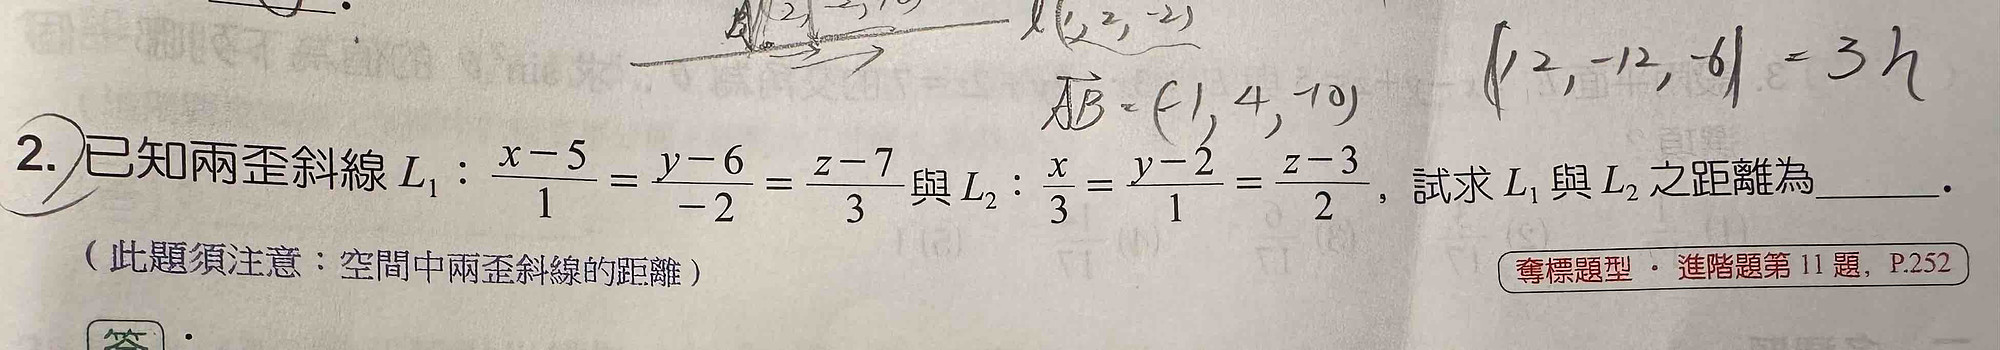 (2, -2, 10)
l(1, 2, -2)
|(12, -12, -6)| = 3h
AB = (-1, 4, -10)
2. 已知兩歪斜線 L₁：(x-5)/1 = (y-6)/-2 = (z-7)/3 與 L₂：x/3 = (y-2)/1 = (z-3)/2，試求 L₁ 與 L₂ 之距離為______．
（此題須注意：空間中兩歪斜線的距離）
奪標題型．進階題第 11 題，P.252
答：